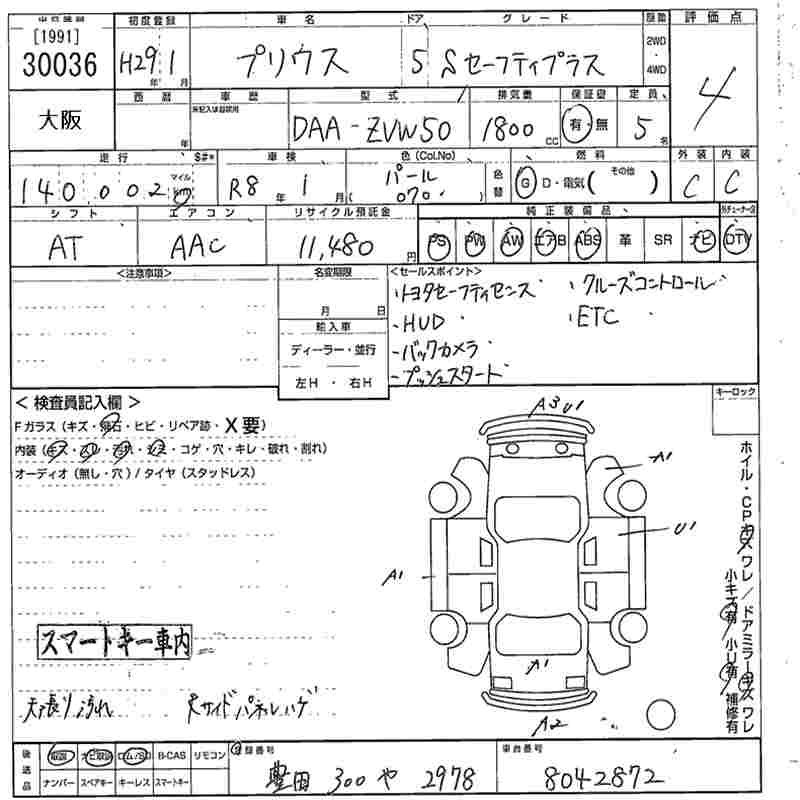 [1991]
30036
大阪
初度登録
H29 1
年 月
車名
プリウス
ドア
5
グレード
Sセーフティプラス
駆動
2WD
4WD
評価点
4
西暦
年
車歴
未記入は自家用
型式
DAA-ZVW50
排気量
1800 CC
保証書
有・無
定員
5 名
走行
S#*
140,002
マイル
km
車検
R8 年 1 月
色(Col.No)
パール
( 070 )
色替
燃料
G D・電気( その他 )
外装
C
内装
C
シフト
AT
エアコン
AAC
リサイクル預託金
11,480 円
純正装備品
PS PW AW エアB ABS 革 SR ナビ DTV
<注意事項>
名変期限
月 日
輸入車
ディーラー・並行
左H・右H
<セールスポイント>
・トヨタセーフティセンス ・クルーズコントロール
・HUD ・ETC
・バックカメラ
・プッシュスタート
キーロック
<検査員記入欄>
Fガラス(キズ・飛石・ヒビ・リペア跡・X要)
内装(キズ・スレ・汚れ・シミ・コゲ・穴・キレ・破れ・割れ)
オーディオ(無し・穴)/タイヤ(スタッドレス)
A3 U1
A1
U1
A1
A1
A2
スマートキー車内
天張り汚れ
サイドパネルハゲ
ホイル・CPキズワレ/ドアミラーキズワレ
小キズ有 小U有 補修有
後送品
取説 ナビ取説 ロム/SD B-CAS リモコン
ナンバー スペアキー キーレス スマートキー
登録番号
豊田 300 や 2978
車台番号
8042872